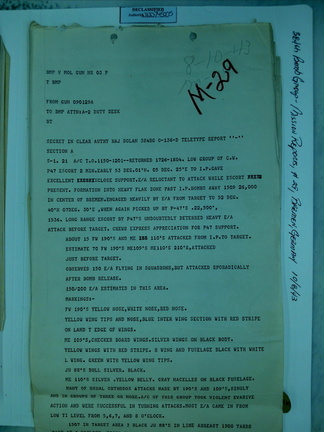 DECLASSIFIED
8-10-43
M-29
384th Bomb Group - Mission Reports, # 29, Bremen, Germany 10/8/43
BMP V MOL COM NR 03 F
T BMP
FROM GUN
TO BMP ATTN:A-2 DUTY DESK
BT
SECRET IN CLEAR AUTHY MAJ DOLAN 3DADG O-136-D TELETYPE REPORT
SECTION A
G-1. 21 A/C T.O.1130-1201--RETURNED 1726-1804. LOW GROUP OF C.W.
P47 ESCORT
EXCELLENT CLOSE SUPPORT.E/A RELUCTANT TO ATTACK WHILE ESCORT
PRESENT. FORMATION INTO HEAVY FLAK ZONE PAST I.P.BOMBS AWAY 24,000
IN CENTER OF BREMEN.ENGAGED HEAVILY BY E/A FROM TARGET TO 52 DEG.
WHEN AGAIN PICKED UP BY P-47'S
1536. LONG RANGE ESCORT BY P47'S UNDOUBTEDLY DETERRED HEAVY E/A
ATTACK BEFORE TARGET. CREWS EXPRESS APPRECIATION FOR P47 SUPPORT.
ABOUT 15 FW 190'S AND ME 110'S ATTACKED FROM I.P.TO TARGET.
ESTIMATE 70 FW 190'S ME109'S ME110'S 210'S,ATTACKED
JUST BEFORE TARGET.
OBSERVED 150 E/A FLYING IN SQUADRONS,BUT ATTACKED SPORADICALLY
AFTER BOMB RELEASE.
150/200 E/A ESTIMATED IN THIS AREA.
MARKINGS:-
FW 190'S YELLOW NOSE,WHITE NOSE,RED NOSE.
YELLOW WING TIPS AND NOSE,BLUE INTER WING SECTION WITH RED STRIPE
ON LAND T EDGE OF WINGS.
ME 109'S,CHECKER BOARD WINGS.SILVER WINGS ON BLACK BODY.
YELLOW WINGS WITH RED STRIPES. WING AND FUSELAGE BLACK WITH WHITE
L WING. GREEN WITH YELLOW WING TIPS.
JU 88'S DULL SILVER. BLACK.
ME 110'S SILVER .YELLOW BELLY. GRAY NACELLES ON BLACK FUSELAGE.
MANY OF USUAL ORTHODOX ATTACKS MADE BY 190'S AND 109'S,SINGLY
AND IN GROUPS OF THREE OR MORE.A/C OF THIS GROUP TOOK VIOLENT EVASIVE
ACTION AND WERE SUCCESSFUL IN TURNING ATTACKS.MOST E/A CAME IN FROM
LOW TI LEVEL FROM 5,6,7, AND 8 O'CLOCK.
JUST IN TARGET AREA 3 BLACK JU 88'S IN LINE ABREAST 1000 YARDS